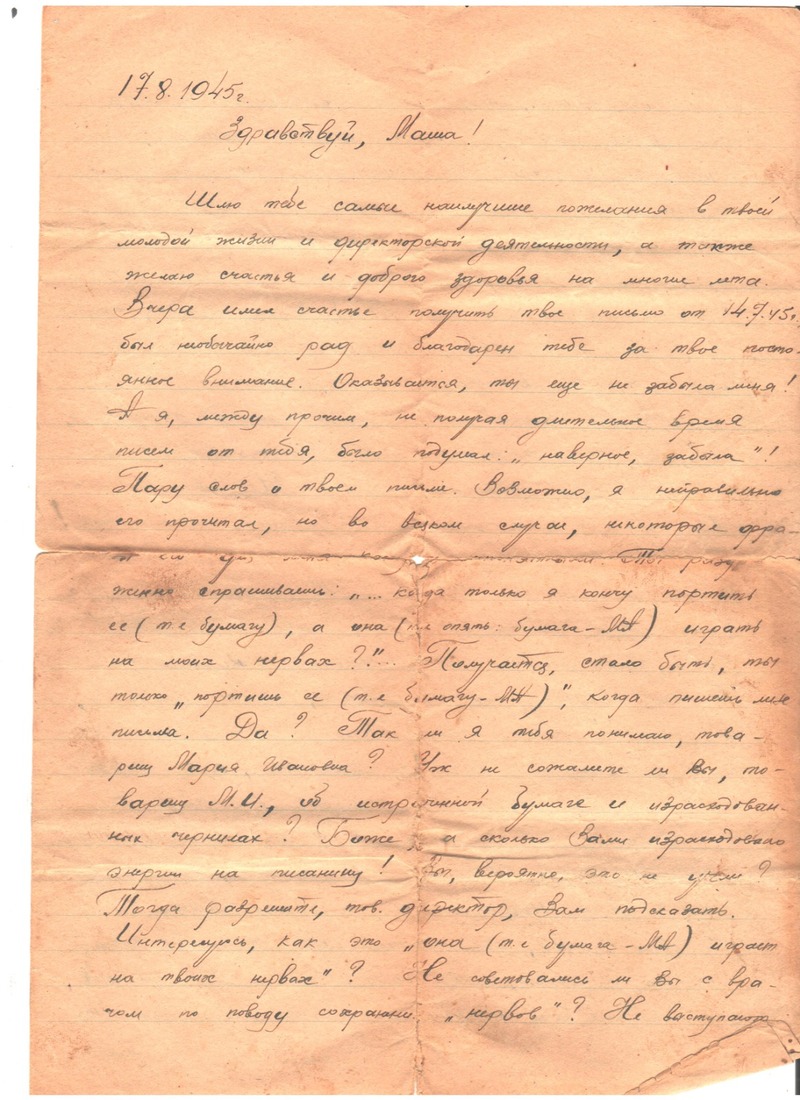 17.8.1945г.
Здравствуй, Маша!
Шлю тебе самые наилучшие пожелания в твоей
молодой жизни и директорской деятельности, а также
желаю счастья и доброго здоровья на многие лета.
Вчера имел счастье получить твое письмо от 14.7.45г.
был необычайно рад и благодарен тебе за твое посто-
янное внимание. Оказывается, ты еще не забыла меня!
А я, между прочим, не получая длительное время
писем от тебя, было подумал: „наверное, забыла"!
Пару слов о твоем письме. Возможно, я неправильно
его прочитал, но во всяком случае, некоторые фра-
Ты разд
женно спрашиваешь: „... когда только я кончу портить
ее (т.е бумагу), а она (т.е опять: бумага-МА) играть
на моих нервах?"... Получается, стало быть, ты
только „портишь ее (т.е бумагу-МА)", когда пишешь мне
письма. Да? Так ли я тебя понимаю, това-
рищ Мария Ивановна? Уж не сожалеете ли Вы, то-
варищ М.И., об истраченной бумаге и израсходован-
ных чернилах? Боже, а сколько Вами израсходовано
энергии на писанину! Вы, вероятно, это не учли?
Тогда разрешите, тов. директор, Вам подсказать.
Интересуюсь, как это „она (т.е бумага-МА) играет
на твоих нервах"? Не советовались ли Вы с вра-
чом по поводу сохранения „нервов"? Не выступаете